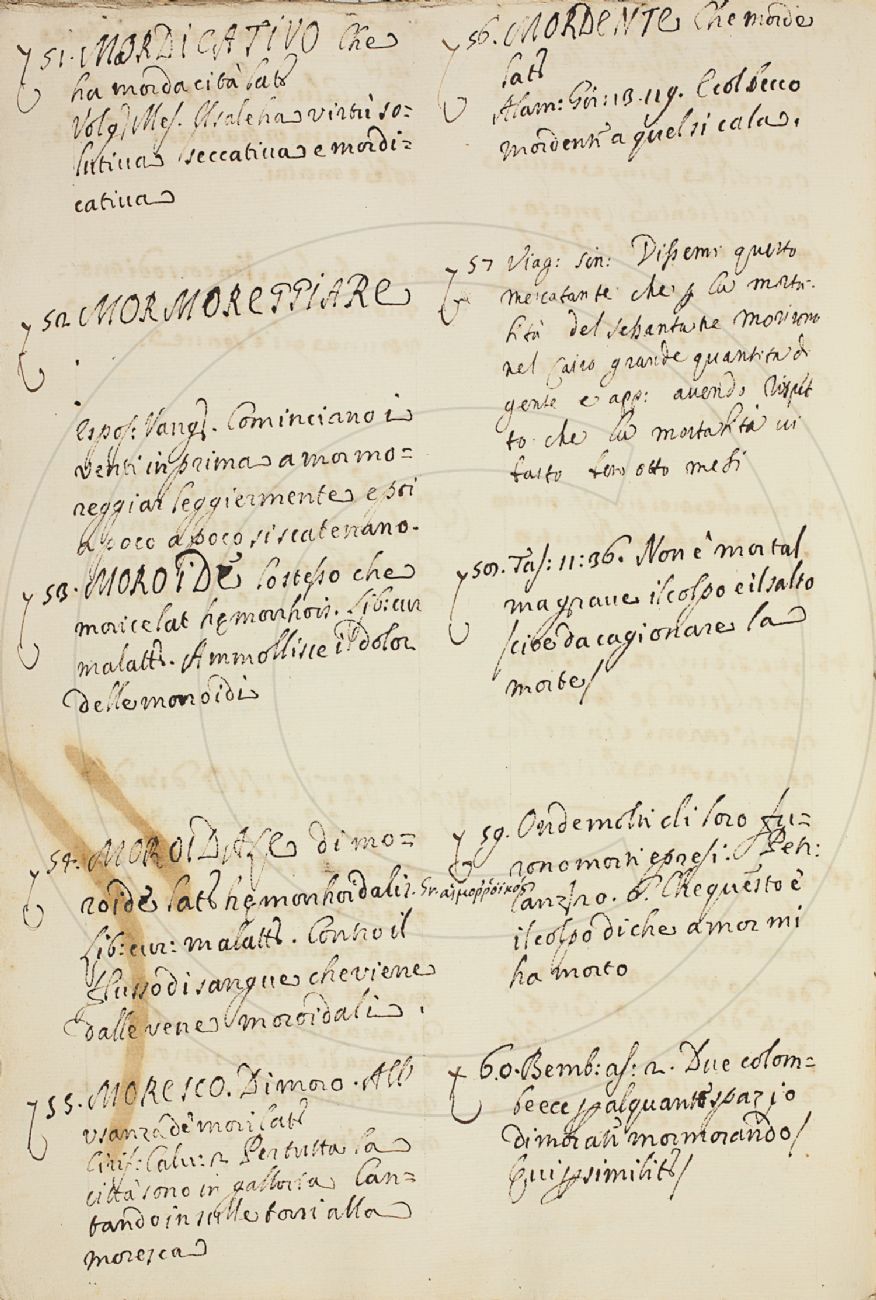 51. MORDICATIVO Che
ha mordacità latё
Volg. Mes. Il sale ha virtù so=
lutiva seccativa e mordi=
cativa
52 MORMOREGGIARE
Espos: Vang. Cominciano i
venti in prima a mormo=
reggiar leggiermente e poi
a poco a poco si scatenano.
53. MOROIDE lo stesso che
morice lat hęmorrhois. Lib: cur
malatt. Ammollisce il dolor
delle moroidi
54. MOROIDALE di mo=
roide lat hęmorrhoidalis. Gr. αἱμοῤῥοϊκός
Lib: cur: malatt. Contro il
flusso di sangue che viene
dalle vene moroidali.
55. MORESCO. Di moro. All
usanza de mori lat
Cirif: Calv: 2 Per tutta la
città sono in galloria Can=
tando in sulle torri alla
moresca
56. MORDENTE Che morde
lat
Alam: Gir: 13. 119. E col becco
mordente a quel si cala.
57 Viag: Sin: Dissemi questo
mercatante che p la morta-
lità del sessanta ne morirono
nel Cairo grande quantità di
gente e app: avendo
to che la mortalità vi
basto loro otto mesi
58. Tas: 11: 36. Non è mortal
ma grave il colpo e il salto
/cioè da cagionare la
morte/
59. Onde molti di loro fu=
rono morti e presi. Petr:
canz: 20. 6. Che questo è
il colpo di che amor mi
ha morto
60. Bemb: as: 2. Due colom=
be ecc p alquanto spazio
dimorati mormorando/
Qui p similit/